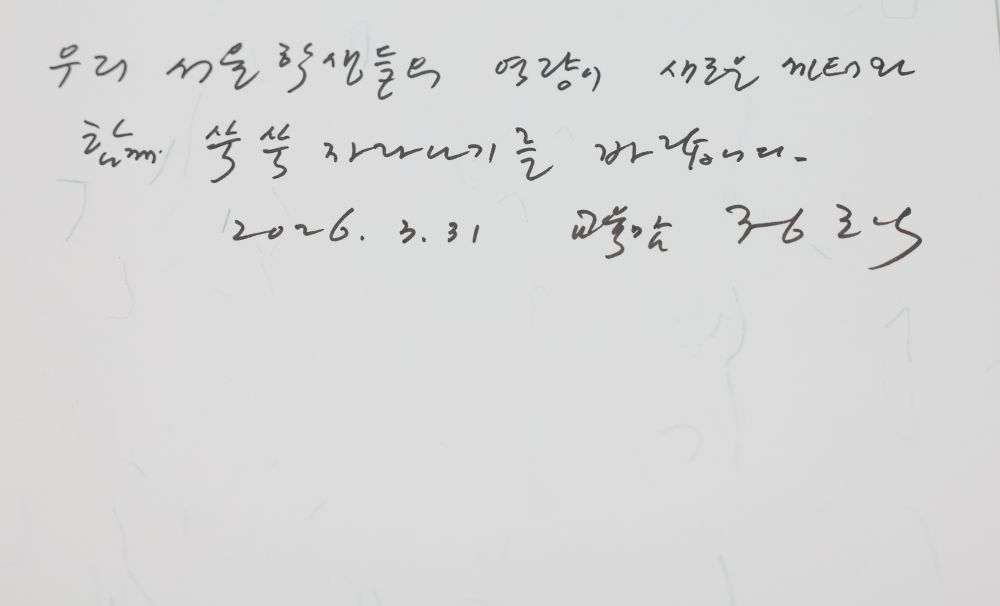 우리 서울 학생들의 역량이 새로운 센터와
함께 쑥쑥 자라나기를 바랍니다.
2026. 3. 31 교육감 정근식